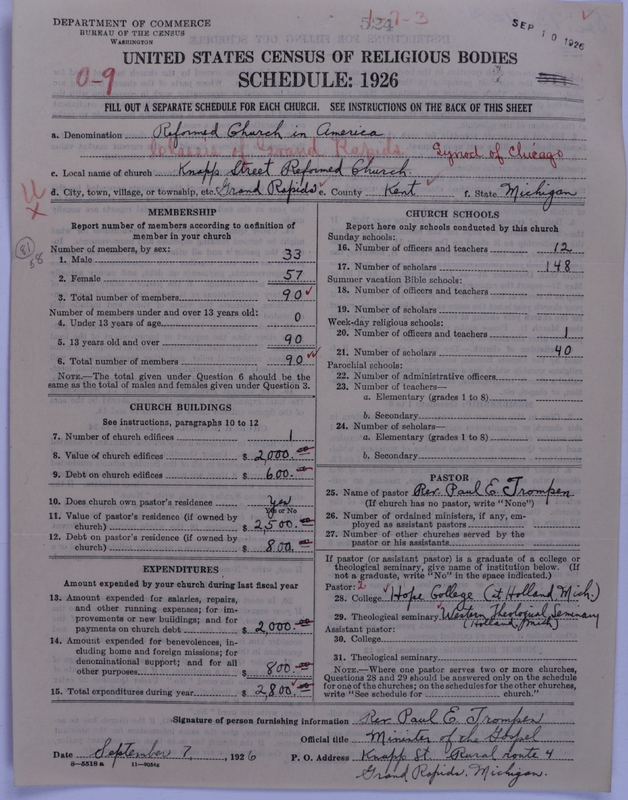 DEPARTMENT OF COMMERCE
BUREAU OF THE CENSUS
WASHINGTON
1-7-3
SEP 10 1926
UNITED STATES CENSUS OF RELIGIOUS BODIES
SCHEDULE: 1926
0-9
FILL OUT A SEPARATE SCHEDULE FOR EACH CHURCH. SEE INSTRUCTIONS ON THE BACK OF THIS SHEET
a. Denomination Reformed Church in America
Classis of Grand Rapids Synod of Chicago
c. Local name of church Knapp Street Reformed Church.
d. City, town, village, or township, etc. Grand Rapids e. County Kent f. State Michigan
MEMBERSHIP
Report number of members according to definition of
member in your church
Number of members, by sex:
1. Male 33
2. Female 57
3. Total number of members 90
Number of members under and over 13 years old:
4. Under 13 years of age 0
5. 13 years old and over 90
6. Total number of members 90
NOTE.—The total given under Question 6 should be the
same as the total of males and females given under Question 3.
CHURCH BUILDINGS
See instructions, paragraphs 10 to 12
7. Number of church edifices 1
8. Value of church edifices $ 2,000.00
9. Debt on church edifices $ 600.00
10. Does church own pastor's residence Yes
Yes or No
11. Value of pastor's residence (if owned by
church) $ 2,500.00
12. Debt on pastor's residence (if owned by
church) $ 800.00
EXPENDITURES
Amount expended by your church during last fiscal year
13. Amount expended for salaries, repairs,
and other running expenses; for im-
provements or new buildings; and for
payments on church debt $ 2,000.00
14. Amount expended for benevolences, in-
cluding home and foreign missions; for
denominational support; and for all
other purposes $ 800.00
15. Total expenditures during year $ 2,800.00
CHURCH SCHOOLS
Report here only schools conducted by this church
Sunday schools:
16. Number of officers and teachers 12
17. Number of scholars 148
Summer vacation Bible schools:
18. Number of officers and teachers
19. Number of scholars
Week-day religious schools:
20. Number of officers and teachers 1
21. Number of scholars 40
Parochial schools:
22. Number of administrative officers
23. Number of teachers—
a. Elementary (grades 1 to 8)
b. Secondary
24. Number of scholars—
a. Elementary (grades 1 to 8)
b. Secondary
PASTOR
25. Name of pastor Rev. Paul E. Trompen
(If church has no pastor, write "None")
26. Number of ordained ministers, if any, em-
ployed as assistant pastors
27. Number of other churches served by the
pastor or his assistants
If pastor (or assistant pastor) is a graduate of a college or
theological seminary, give name of institution below. (If
not a graduate, write "No" in the space indicated.)
Pastor: 2
28. College Hope College (at Holland Mich.)
29. Theological seminary Western Theological Seminary
(Holland, Mich)
Assistant pastor:
30. College
31. Theological seminary
NOTE.—Where one pastor serves two or more churches,
Questions 28 and 29 should be answered only on the schedule
for one of the churches; on the schedules for the other churches,
write "See schedule for church."
Signature of person furnishing information Rev. Paul E. Trompen
Official title Minister of the Gospel
Date September 7, 1926 P. O. Address Knapp St. Rural route 4
8—5518a 11—9054a
Grand Rapids, Michigan.